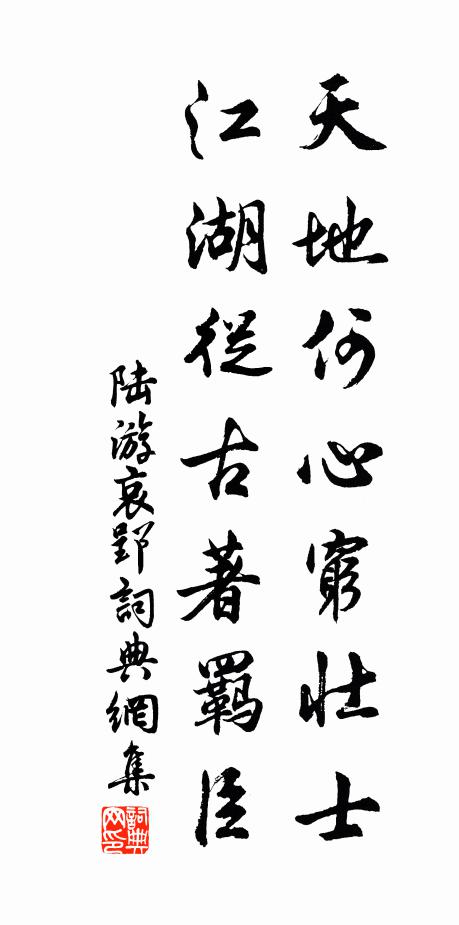 天地何心窮壯士
江湖從古著羈臣
陸游哀郢詞典網集
詞典网印